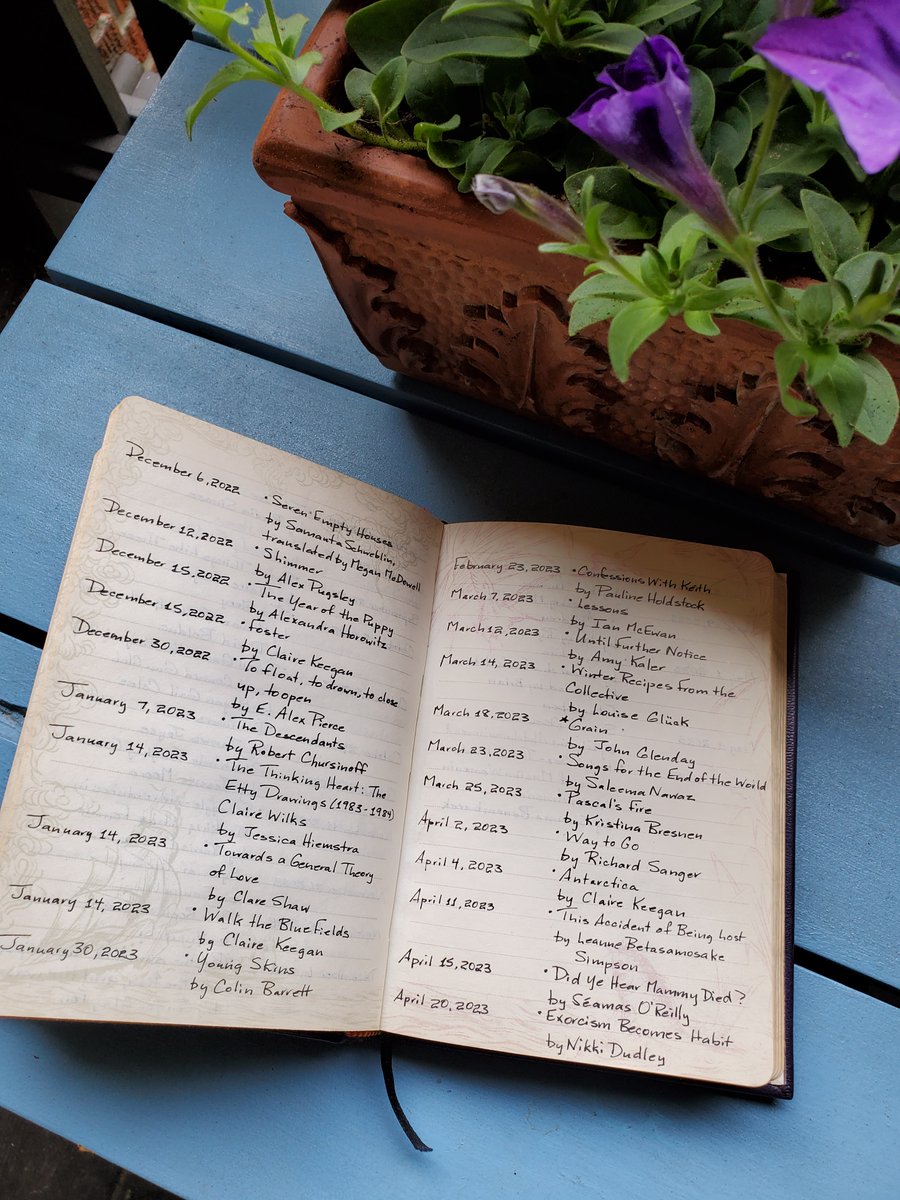 December 6, 2022 • Seven Empty Houses
by Samanta Schweblin,
translated by Megan McDowell
December 12, 2022 • Shimmer
by Alex Pugsley
December 15, 2022 • The Year of the Puppy
by Alexandra Horowitz
December 15, 2022 • Foster
by Claire Keegan
December 30, 2022 • To float, to drown, to close
up, to open
by E. Alex Pierce
January 7, 2023 • The Descendants
by Robert Chursinoff
January 14, 2023 • The Thinking Heart: The
Etty Drawings (1983-1984)
Claire Wilks
by Jessica Hiemstra
January 14, 2023 • Towards a General Theory
of Love
by Clare Shaw
January 14, 2023 • Walk the Blue Fields
by Claire Keegan
January 30, 2023 • Young Skins
by Colin Barrett
February 23, 2023 • Confessions With Keith
by Pauline Holdstock
March 7, 2023 • Lessons
by Ian McEwan
March 12, 2023 • Until Further Notice
by Amy Kaler
March 14, 2023 • Winter Recipes from the
Collective
by Louise Glück
March 18, 2023 *Grain
by John Glenday
March 23, 2023 • Songs for the End of the World
by Saleema Nawaz
March 25, 2023 • Pascal's Fire
by Kristina Bresnen
April 2, 2023 • Way to Go
by Richard Sanger
April 4, 2023 • Antarctica
by Claire Keegan
April 11, 2023 • This Accident of Being Lost
by Leanne Betasamosake
Simpson
April 15, 2023 • Did Ye Hear Mammy Died?
by Séamas O'Reilly
April 20, 2023 • Exorcism Becomes Habit
by Nikki Dudley